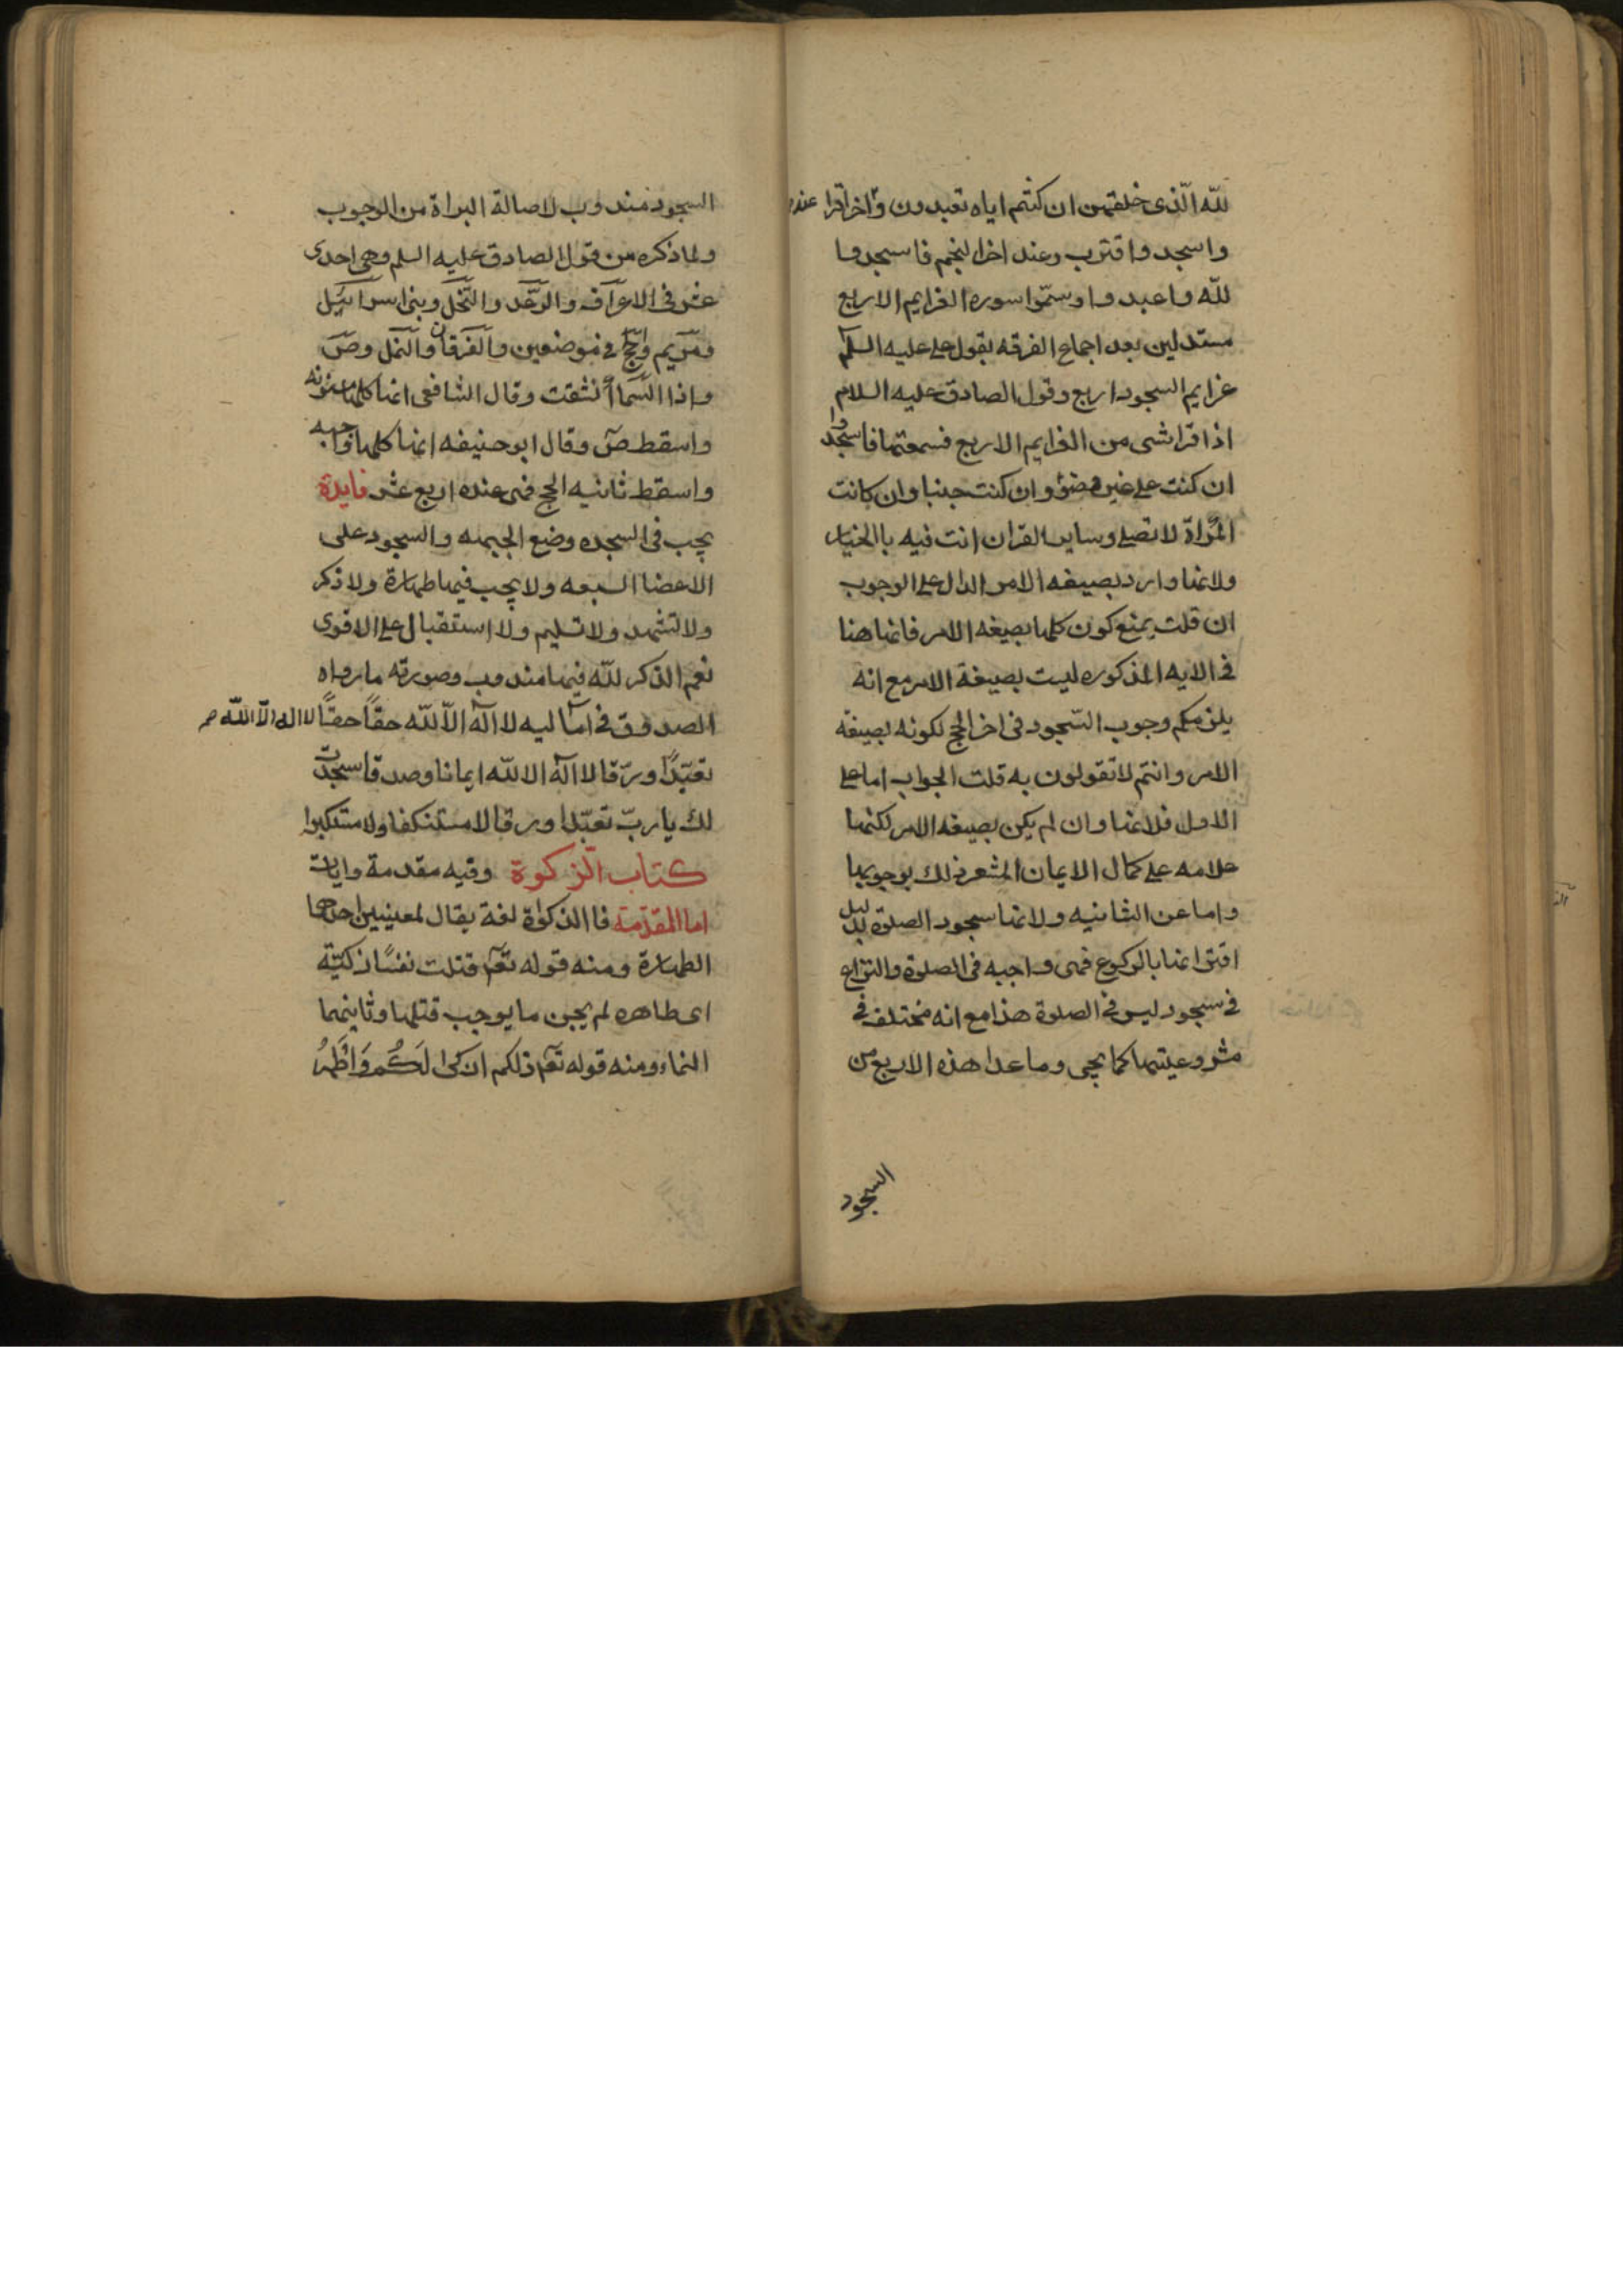 لله الّذى خلقهن ان كنتم اياه تعبدون واخراقرا عند
واسجد واقترب وعند اخرالنجم فاسجدوا
لله واعبدوا وسمّوا سوره الغرايم الاربع
مستدلين بعد اجماع الفرقه بقول على عليه السلم
غرايم السجود اربع وقول الصادق عليه السلام
اذا قرا شى من الغرايم الاربع فسمعتها فاسجد
ان كنت على غير وضوء وان كنت جنبا وان كانت
المراة لا تصلى وساير القران انت فيه باالخيار
ولانها وارد بصيغه الامر الدال على الوجوب
ان قلت يمنع كون كلها بصيغه الامر فانها هنا
فى الايه المذكوره ليست بصيغة الامر مع انه
يلزمكم وجوب السّجود فى اخر الحج لكونه بصيغه
الامر وانتم لا تقولون به قلت الجواب اما على
الاول فلانها وان لم يكن بصيغه الامر لكنها
علامه على كمال الايمان المشعر ذلك بوجوبها
واما عن الثانيه ولانها سجود الصلوة بدليل
اقترانها بالركوع فهى واجبه فى الصلوة والنزاع
فى سجود ليس فى الصلوة هذا مع انه مختلف فى
مشروعيتها كما يجى وما عدا هذه الاربع من
السجود
السجود مندوب لاصالة البراة من الوجوب
ولما ذكره من قول الصادق عليه السلم وهى احدى
عشر فى الاعراف والرعد والنخل وبنى اسرائيل
ومريم والحج فى موضعين والفرقان والنمل وص
واذا السما انشقت وقال الشافعى انها كلها مسنونه
واسقط ص وقال ابوحنيفه انها كلها واجبه
واسقط ثانيه الحج فهى عنده اربع عشر فايدة
يجب فى السجده وضع الجبهه والسجود على
الاعضا السبعه ولا يجب فيها طهارة ولا ذكر
ولا تشهد ولا تسليم ولا استقبال على الاقوى
نعم الذكر لله فيها مندوب وصورته ما رواه
الصدوق فى اماليه لا اله الاّ الله حقاً حقاً لا اله الاّ الله
تعبّداً ورقا لا اله الا الله ايمانا وصدقا سجدت
لك يا ربّ تعبّدا ورقا لا مستنكفا ولا مستكبرا
كتاب الزكوة وفيه مقدمة وايات
اما المقدّمة فا الذكوة لغة يقال لمعنيين احدهما
الطهارة ومنه قوله تعم قتلت نفسًا زكيّة
اى طاهره لم يجن ما يوجب قتلها وثانيهما
النماء ومنه قوله تعم ذلكم ازكى لَكُم وَاَطْهَرُ